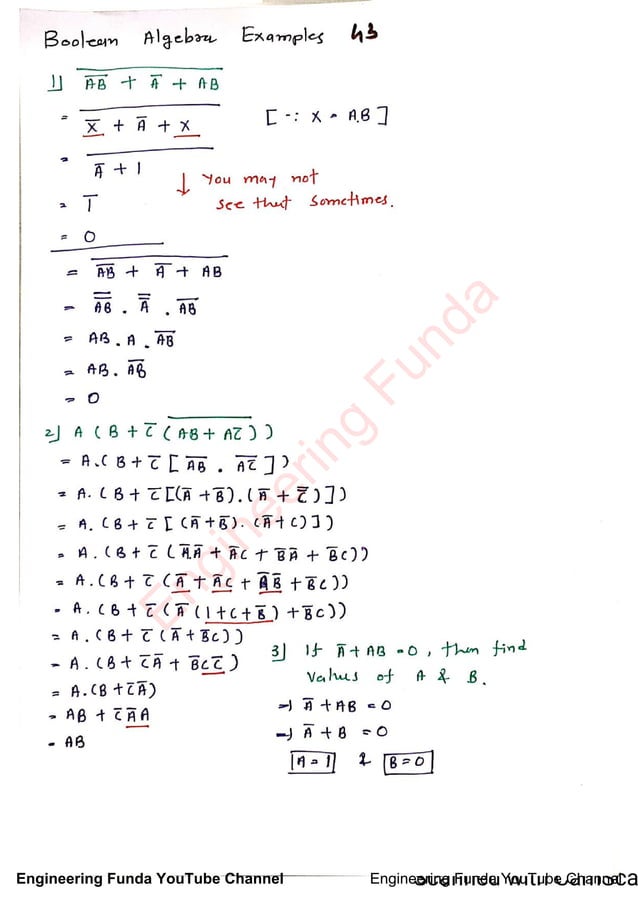 Boolean Algebra Examples 43
1) \overline{\overline{AB} + \overline{A} + AB}
= \overline{\overline{X} + \overline{A} + X} [∵ X = A.B]
= \overline{\overline{A} + 1}
↓ You may not
= \overline{1} see that sometimes.
= 0
= \overline{\overline{AB} + \overline{A} + AB}
= \overline{\overline{AB}} . \overline{\overline{A}} . \overline{AB}
= AB . A . \overline{AB}
= AB . \overline{AB}
= 0
2) A ( B + \overline{C} ( \overline{AB + A\overline{C}} ) )
= A.( B + \overline{C} [ \overline{AB} . \overline{A\overline{C}} ] )
= A. ( B + \overline{C} [(\overline{A} + \overline{B}) . (\overline{A} + \overline{\overline{C}} )] )
= A. ( B + \overline{C} [ (\overline{A} + \overline{B}) . (\overline{A} + C) ] )
= A. ( B + \overline{C} ( \overline{A}\,\overline{A} + \overline{A}C + \overline{B}\,\overline{A} + \overline{B}C ) )
= A. ( B + \overline{C} ( \overline{A} + \overline{A}C + \overline{A}\,\overline{B} + \overline{B}C ) )
= A. ( B + \overline{C} ( \overline{A} ( 1 + C + \overline{B} ) + \overline{B}C ) )
= A. ( B + \overline{C} ( \overline{A} + \overline{B}C ) )
= A. ( B + \overline{C}\,\overline{A} + \overline{B}C\overline{C} )
= A. ( B + \overline{C}\,\overline{A} )
= AB + \overline{C}\,\overline{A}A
= AB
3) If \overline{A} + AB = 0 , then find
values of A & B.
→ \overline{A} + AB = 0
→ \overline{A} + B = 0
A = 1 & B = 0
Engineering Funda
Engineering Funda YouTube Channel Engineering Funda YouTube Channel